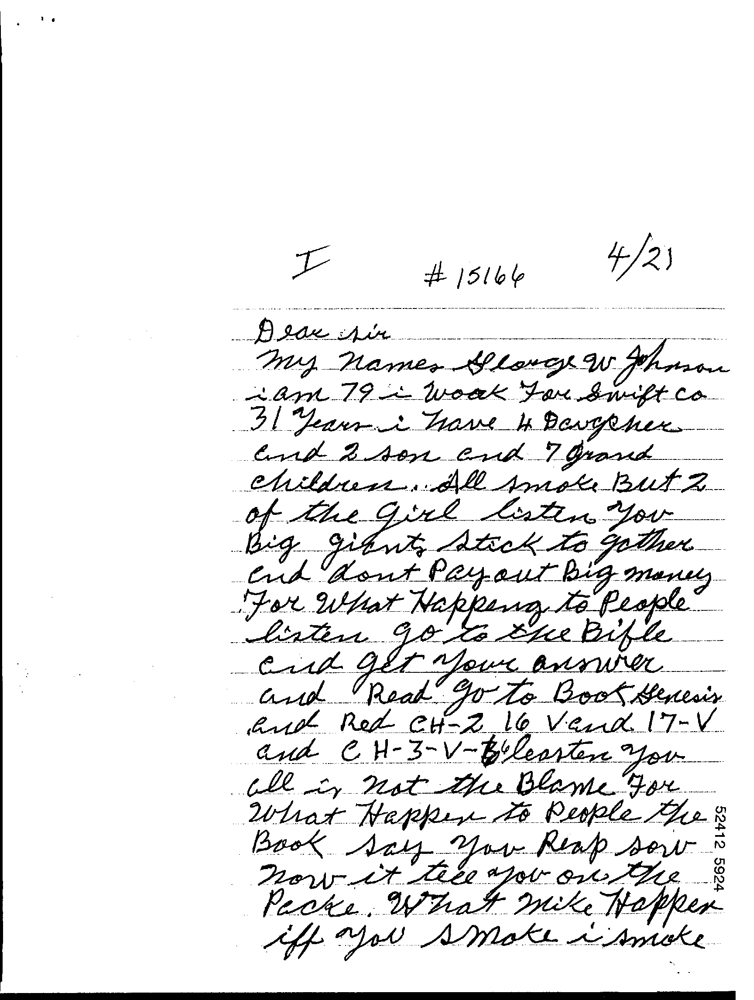 I
# 15166
4/21
Dear sir
my names George W Johnson
i am 79 i woork For Swift co
31 Years i have 4 Daugpher
and 2 son and 7 grand
children.. All smoke But 2
of the girl listen you
Big giants stick to gather
end dont Pay out Big money
For What Happeng to People
listen go to the Bible
and get your answer
and Read go to Book Genesis
and Red CH-2 16 V and 17-V
and CH-3-V-6 learten you
all is not the Blame For
What Happen to People the
Book say you Reap sow
now it tell you on the
Packe. What mike Happen
iff you smoke i smoke
52412 5924